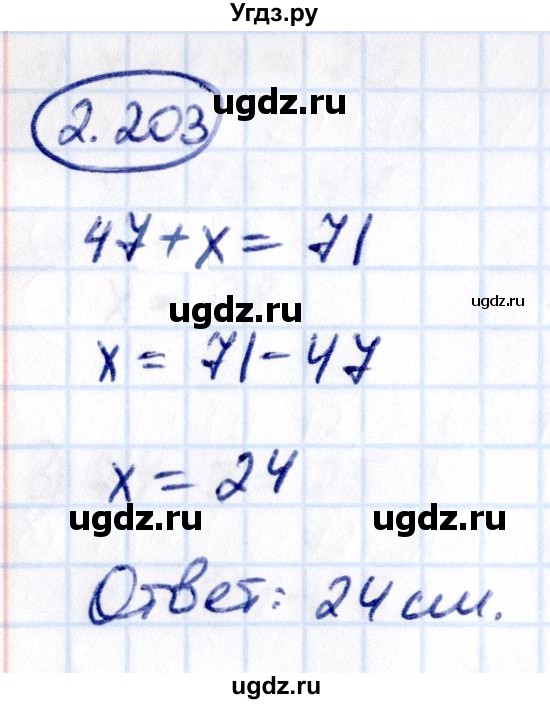 Угдз.ру
2.203
ugdz.ru
47+x=71
ugdz.ru
ugdz.ru
x=71-47
x=24
ugdz.ru
ugdz.ru
Ответ: 24 см.
ugdz.ru